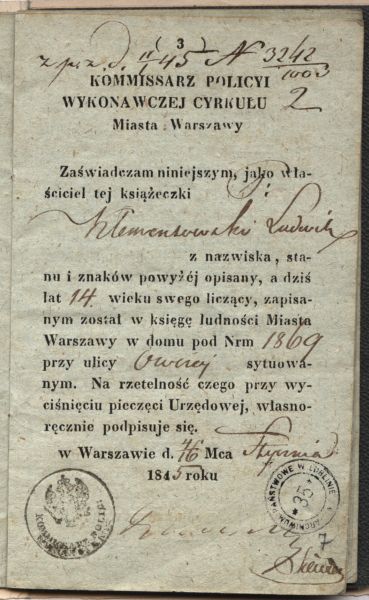 ( 3 )
z p. z. d. 11/1 45 N 3242/1003
KOMMISSARZ POLICYI
WYKONAWCZEJ CYRKUŁU 2
Miasta Warszawy
Zaświadczam niniejszym, jako wła-
ściciel tej książeczki
Klementowski Ludwik
z nazwiska, sta-
nu i znaków powyżéj opisany, a dziś
lat 14 wieku swego liczący, zapisa-
nym został w księgę ludności Miasta
Warszawy w domu pod Nrm 1869
przy ulicy sytuowa-
nym. Na rzetelność czego przy wy-
ciśnięciu pieczęci Urzędowej, własno-
ręcznie podpisuje się.
w Warszawie d. 16 Mca Stycznia
1845 roku
KOMMISSARZ POLICYI
ARCHIWUM PAŃSTWOWE W LUBLINIE
* 35 *
7